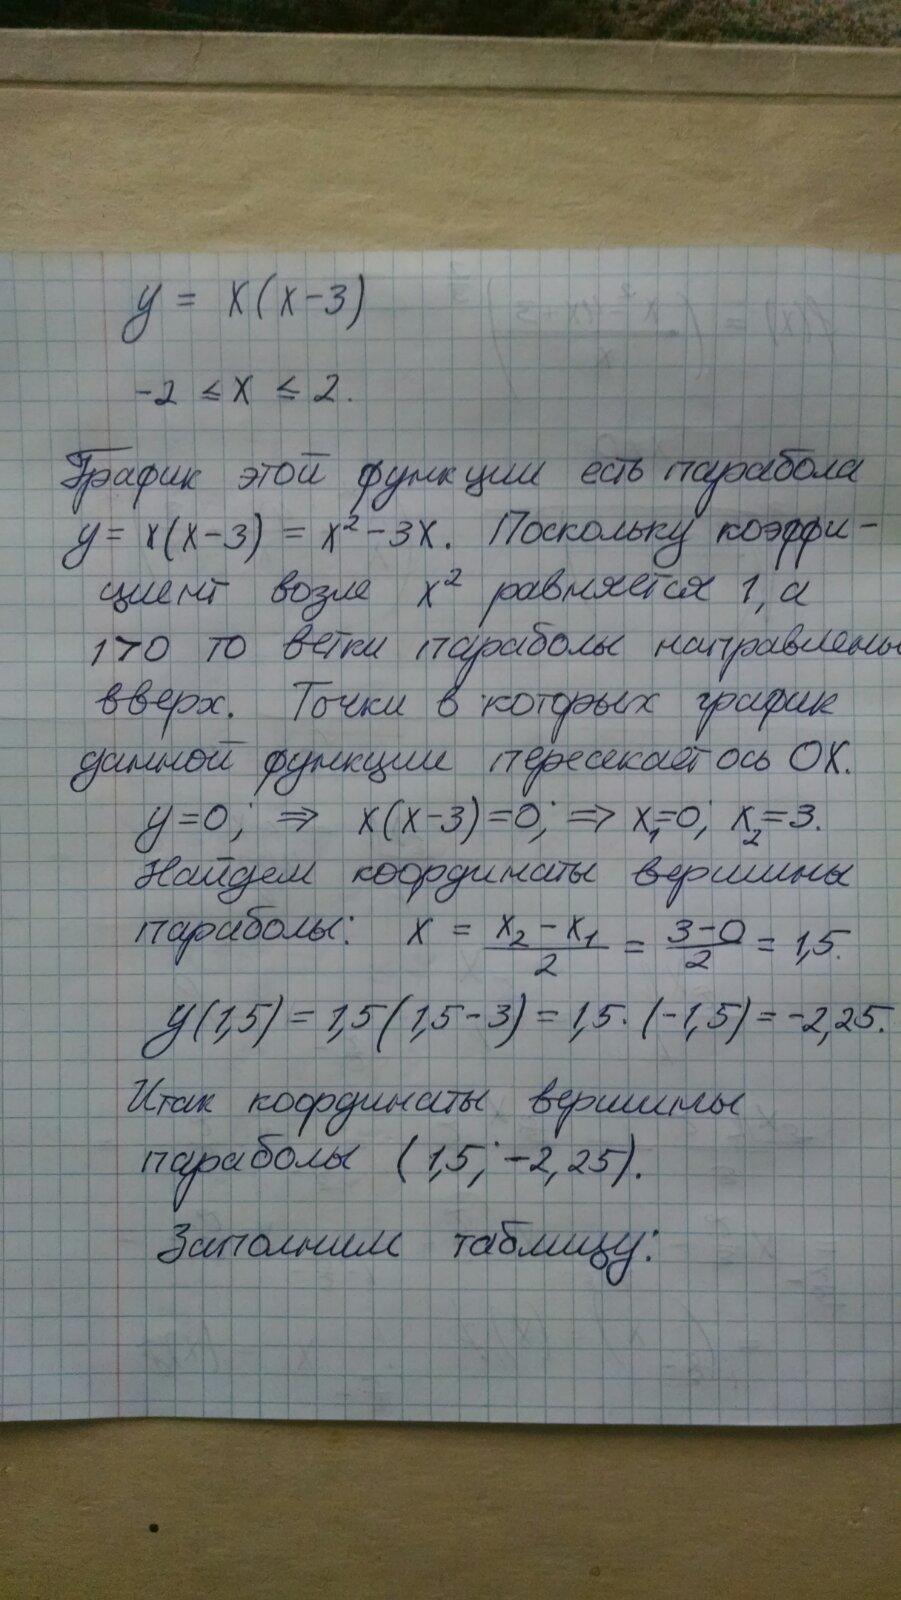 y = x(x-3)
-2 ≤ x ≤ 2.
График этой функции есть парабола
y = x(x-3) = x² - 3x. Поскольку коэффи-
циент возле x² равняется 1, а
1>0 то ветки параболы направлены
вверх. Точки в которых график
данной функции пересекает ось OX.
y=0; ⇒ x(x-3)=0; ⇒ x₁=0; x₂=3.
Найдем координаты вершины
параболы: x = (x₂ - x₁)/2 = (3-0)/2 = 1,5.
y(1,5) = 1,5(1,5-3) = 1,5·(-1,5) = -2,25.
Итак координаты вершины
параболы (1,5; -2,25).
Заполним таблицу: